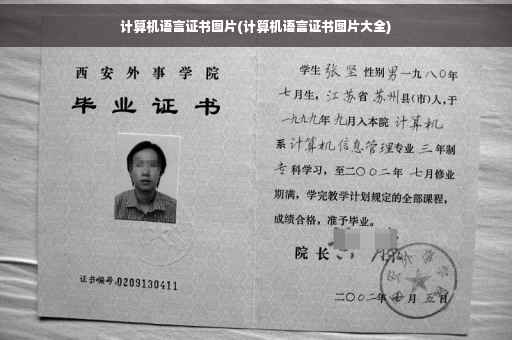 计算机语言证书图片(计算机语言证书图片大全)
西安外事学院
毕业证书
证书编号:0209130411
学生 张坚 性别 男 一九八〇年
七月生，江苏省 苏州县(市)人，于
一九九九年 九月入本院 计算机
系 计算机信息管理专业 三 年制
专科学习，至二〇〇二年 七月修业
期满，学完教学计划规定的全部课程，
成绩合格，准予毕业。
院长
二〇〇二年 月 五日